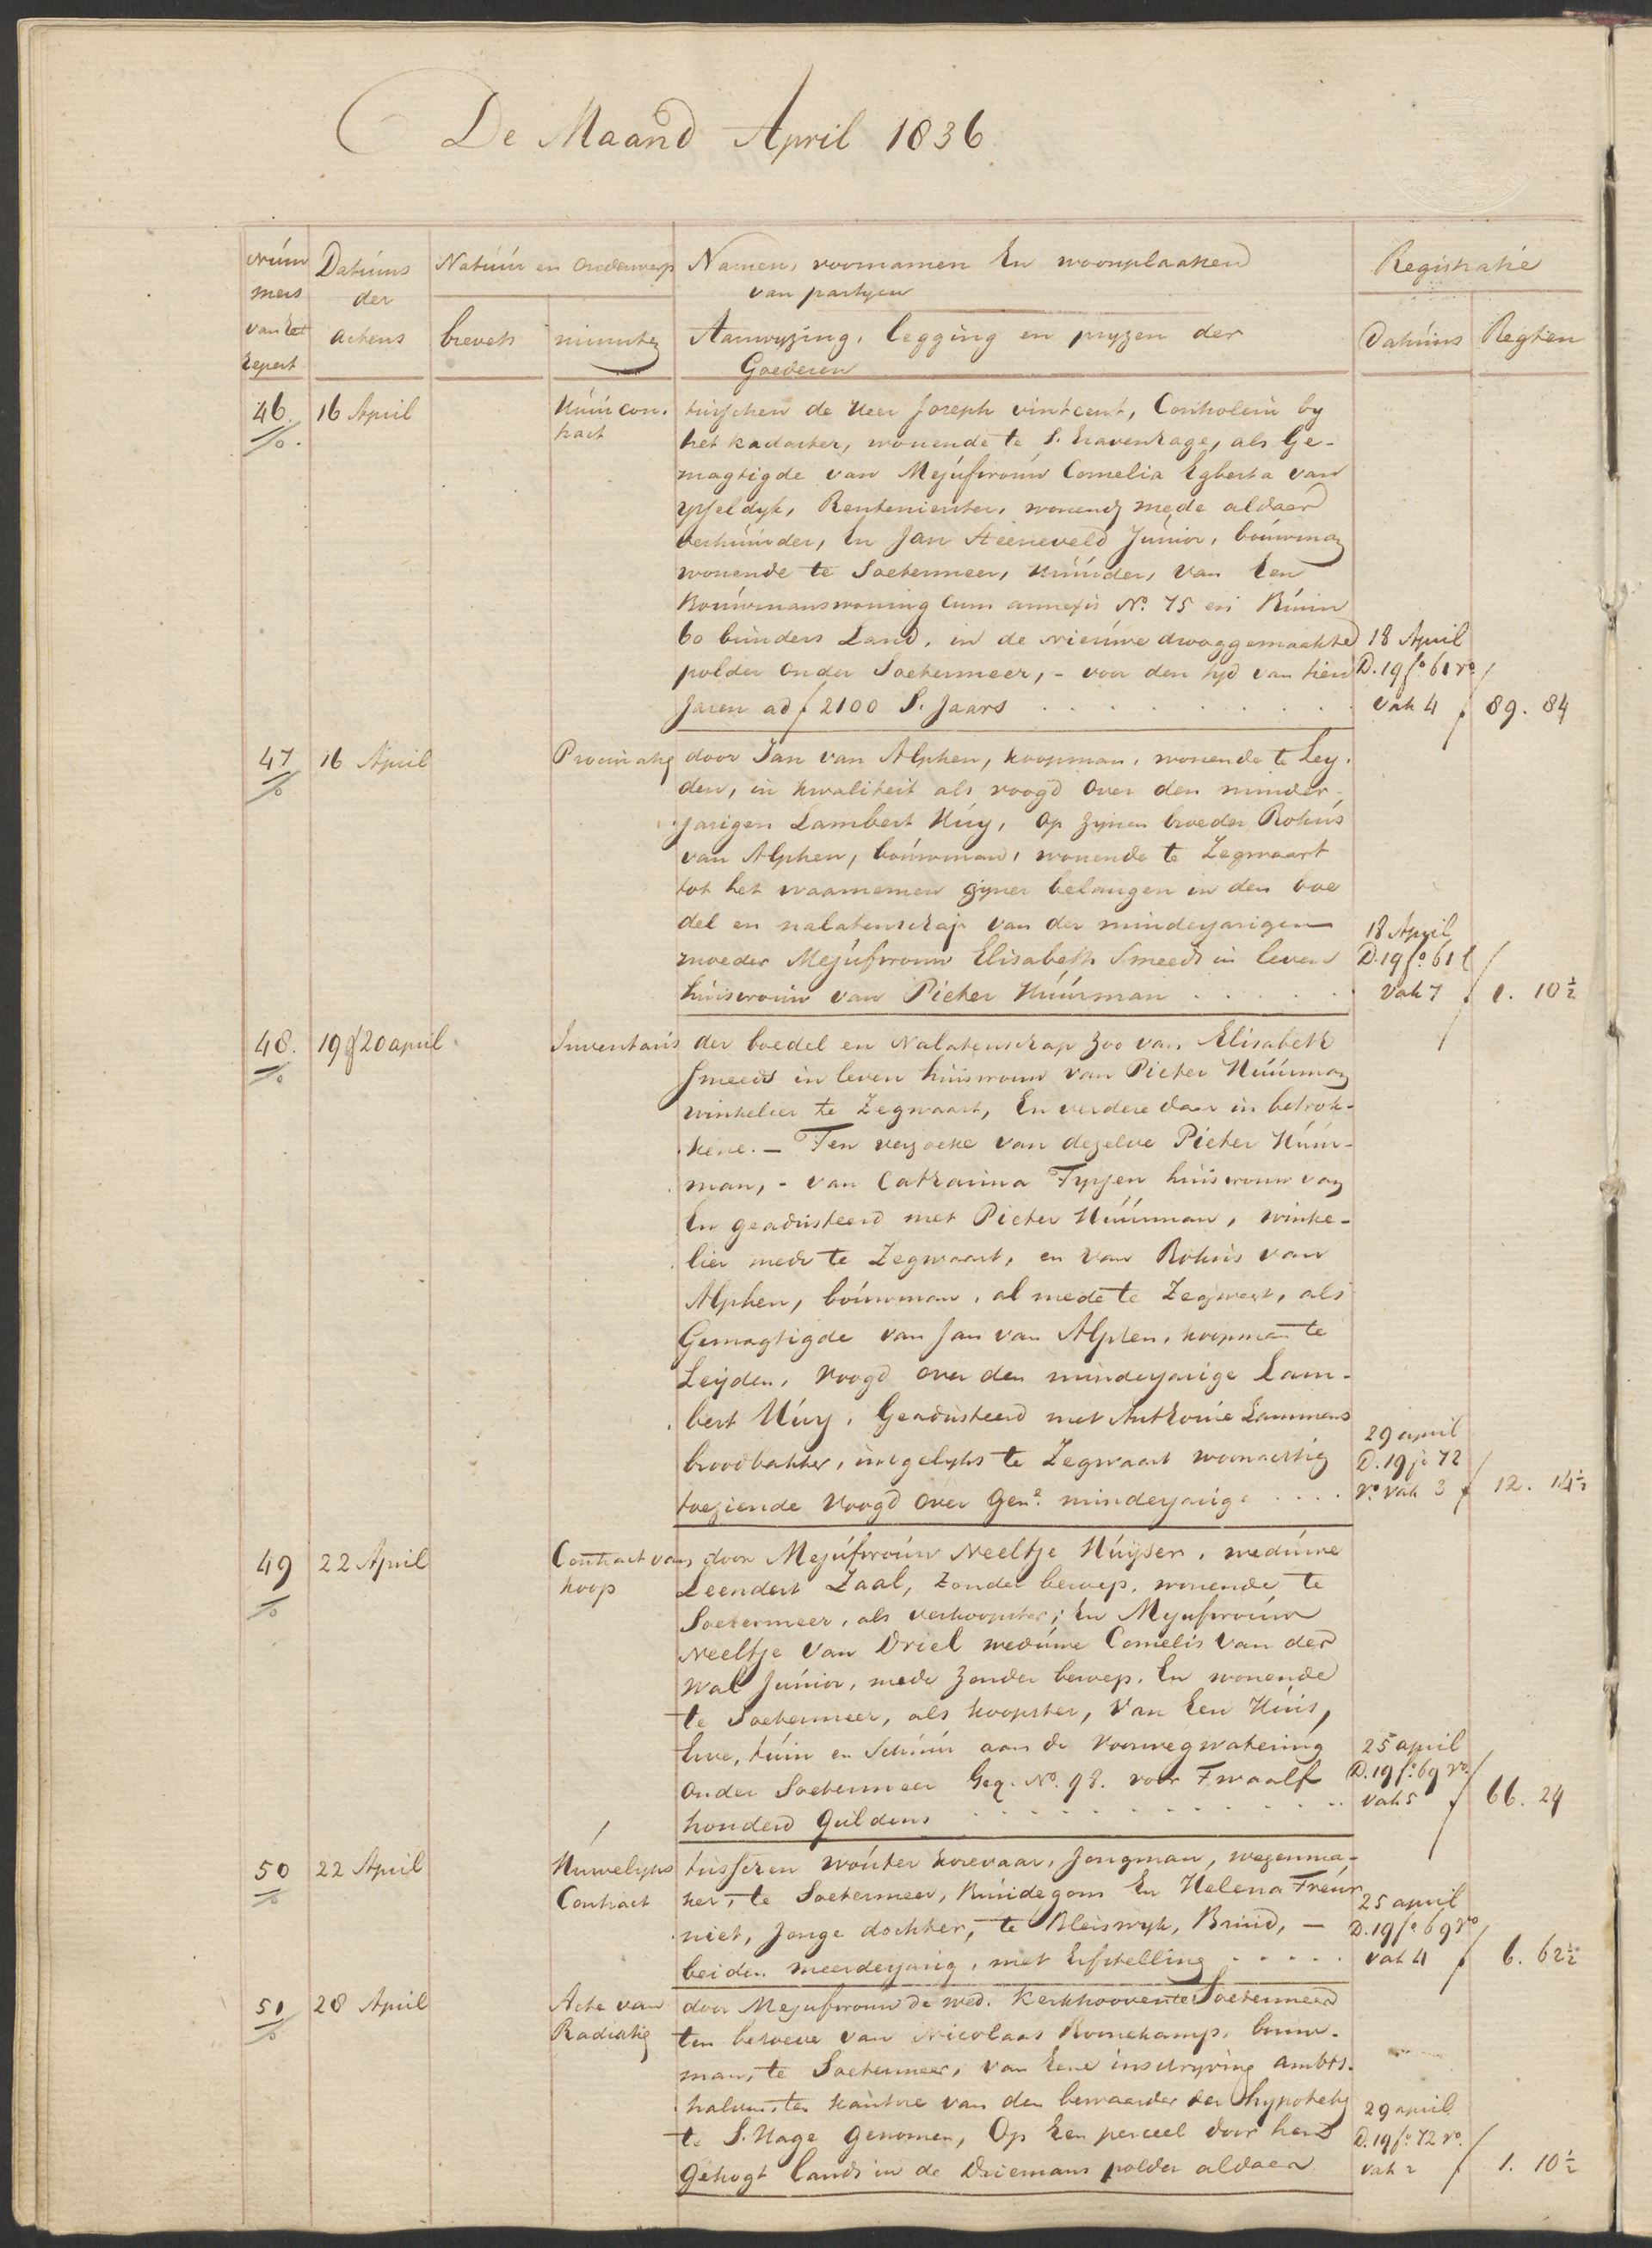 De Maand April 1836
Num
mers
van het
repert
Datums
der
actens
Natuur en onderwerp
brevets
minuten
Namen, voornamen En woonplaatsen
van partyen
Aanwyzing, legging en pryzen der
Goederen
Registratie
Datums
Regten
46. 16 April
Huur con-
tract
tusschen de Heer Joseph vintcent, Controleur by
het kadaster, wonende te S. Gravenhage, als Ge-
magtigde van Mejufvrouw Cornelia Egberta van
ysseldyk, Rentenierster, wonende mede aldaar
verhuurder, En Jan Steeneveld Junior, bouwman
wonende te Soetermeer, Huurder, van Een
Bouwmanswoning Cum annexis No. 75 en Ruim
60 bunders Land, in de nieuwe drooggemaakte
polder onder Soetermeer, - voor den tyd van tien
Jaren ad ƒ 2100 S. Jaars
18 April
D. 19 fo 61 ro
vak 4 ƒ 89. 84
47 16 April
Procuratie
door Jan van Alphen, koopman, wonende te Ley-
den, in kwaliteit als voogd over den minder-
jarigen Lambert Huy, op zynen broeder Rokus
van Alphen, bouwman, wonende te Zegwaart
tot het waarnemen zyner belangen in den boe
del en nalatenschap van der minderjarigen
moeder Mejufvrouw Elisabeth Smeeds in leven
huisvrouw van Pieter Huurman
18 April
D. 19 fo 61
Vak 7 ƒ 1. 10 ½
48. 19 & 20 april
Inventaris
der boedel en Nalatenschap zoo van Elisabeth
Smeeds in leven huisvrouw van Pieter Huurman
winkelier te Zegwaart, En verdere daar in betrok-
kene. - Ten verzoeke van dezelve Pieter Huur-
man, - van Catharina Tyssen huisvrouw van
En geadsisteerd met Pieter Huurman, winke-
lier mede te Zegwaart, en van Rokus van
Alphen, bouwman, al mede te Zegwaart, als
Gemagtigde van Jan van Alphen, koopman te
Leijden, voogd over den minderjarige Lam-
bert Huy, Geadsisteerd met Anthonie Lammens
broodbakker, insgelyks te Zegwaart woonachtig
toeziende Voogd over Gen. minderjarige
29 april
D. 19 fo 72
vo vak 3 ƒ 12. 14 ½
49 22 April
Contract van
koop
door Mejufvrouw Neeltje Huijser, weduwe
Leendert Zaal, zonder beroep, wonende te
Soetermeer, als verkoopster; En Mejufvrouw
Neeltje van Driel weduwe Cornelis van der
Wal Junior, mede zonder beroep, En wonende
te Soetermeer, als koopster, Van Een Huis,
Erve, tuin en Schuur aan de Voorwegwatering
onder Soetermeer Geq. No. 98. voor Twaalf
honderd Guldens
25 april
D. 19 fo 69 vo
vak 5 ƒ 66. 24
50 22 April
Huwelyks
Contract
tusschen wouter Korevaar, Jongman, wagenma-
ker, te Soetermeer, Bruidegom En Helena Treur
niet, Jonge dochter, te Bleiswyk, Bruid, -
beiden meerderjarig, met Erfstelling
25 april
D. 19 fo 69 vo
vak 4 ƒ 6. 62 ½
51 28 April
Acte van
Radiatie
door Mejufvrouw de wed. Kerkhooven te Soetermeer
ten behoeve van Nicolaas Boonekamp, bouw-
man, te Soetermeer, van Eene inschryving ambts-
halve, ten kantore van den bewaarder der hypotheken
te S. Hage Genomen, Op Een perceel door hem
Gekogt Lands in de Driemans polder aldaar
29 april
D. 19 fo 72 vo
vak 2 ƒ 1. 10 ½